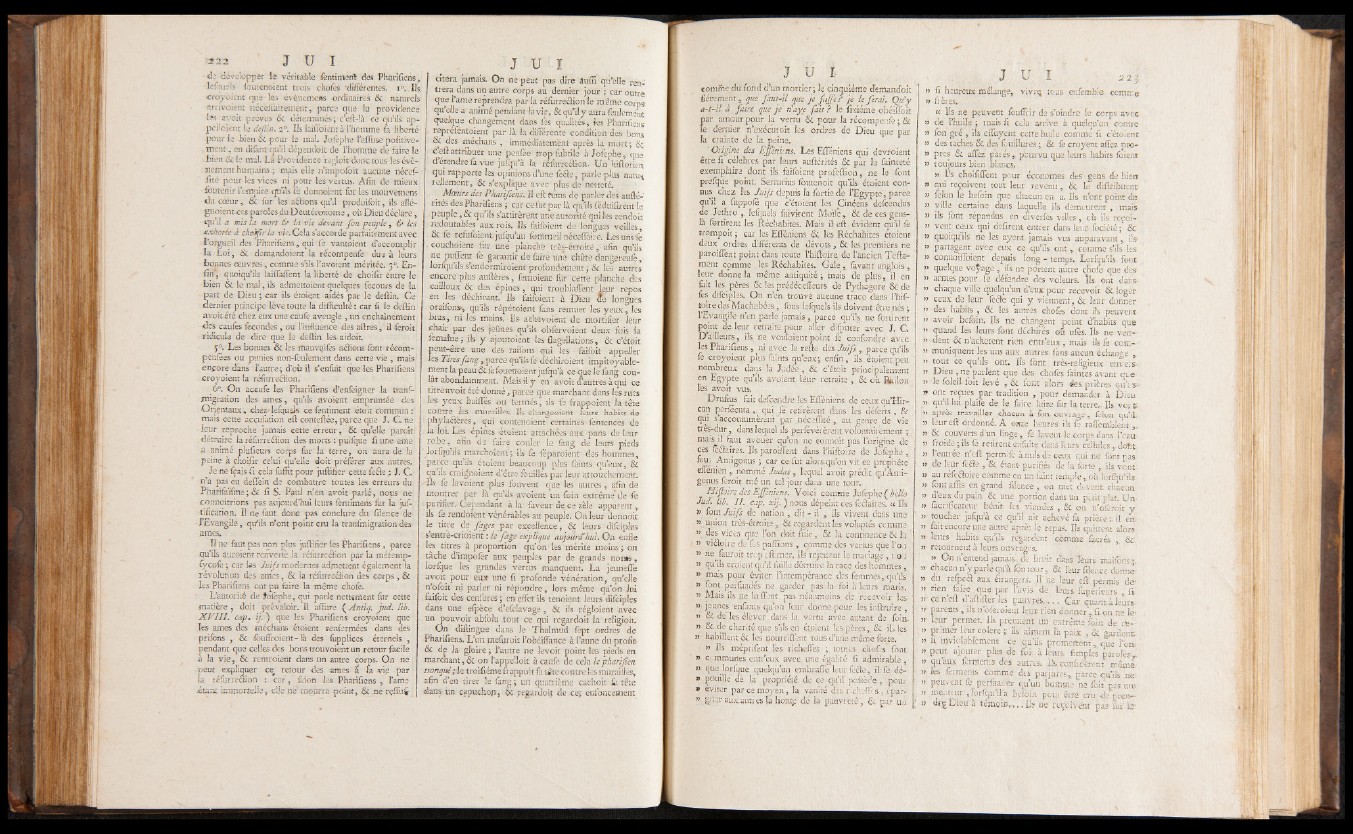 222 J U I
de développer le véritable sentiment des Pharisiens,
lesquels soutenoient trois choses différentes. 1°. Ils
croyoient que les évènemens ordinaires & naturels
arrivoient nécessairement, parce que la providence
les avoit prévus & déterminés; c'est-là ce qu'ils ap-
pelloient le destin. 2°. Ils laissoient à l'homme sa liberté
pour le bien & pour le mal. Josephe l'assure positive-
ment, en disant qu'il dépendoit de l'homme de faire le
bien & le mal. La Providence régloit donc tous les évé-
nemens humains; mais elle n'imposoit aucune néces-
sité pour les vices ni pour les vertus. Afin de mieux
soutenir l'empire qu'ils se donnoient sur les mouvemens
du cœur, & sur les actions qu'il produisoit, ils allé-
guoient ces paroles du Deutéronome, où Dieu déclare,
qu'il a mis la mort & la vie devant son peuple, & les
exhorte à choisir la vie. Cela s'accorde parfaitement avec
l'orgueil des Pharisiens, qui se vantoient d'accomplir
la Loi, & demandoient la récompense due à leurs
bonnes œuvres, comme s'ils l'avoient méritée. 3°. En-
fin, quoiqu'ils laissassent la liberté de choisir entre le
bien & le mal, ils admettoient quelques secours de la
part de Dieu; car ils étoient aidés par le destin. Ce
dernier principe lève toute la difficulté: car si le destin
avoit été chez eux une cause aveugle, un enchaînement
des causes secondes, ou l'influence des astres, il seroit
ridicule de dire que le destin les aidoit.
5°. Les bonnes & les mauvaises actions sont récom-
pensées ou punies non-seulement dans cette vie, mais
encore dans l'autre; d'où il s'ensuit que les Pharisiens
croyoient la résurrection.
6°. On accuse les Pharisiens d'enseigner la trans-
migration des ames, qu'ils avoient empruntée des
Orientaux, chez lesquels ce sentiment étoit commun:
mais cette accusation est contestée, parce que J. C. ne
leur reproche jamais cette erreur, & qu'elle paroît
détruire la résurrection des morts: puisque si une ame
a animé plusieurs corps sur la terre, on aura de la
peine à choisir celui qu'elle doit préférer aux autres.
Je ne sçais si cela suffit pour justifier cette secte: J. C.
n'a pas eu dessein de combattre toutes les erreurs du
Pharisaïsme; & si S. Paul n'en avoit parlé, nous ne
connoîtrions pas aujourd'hui leurs sentimens sur la jus-
tification. Il ne faut donc pas conclure du silence de
l'Evangile, qu'ils n'ont point cru la transmigration des
ames.
Il ne faut pas non plus justifier les Pharisiens, parce
qu'ils auroient renversé la résurrection par la métemp-
sycose; car les Juifs modernes admettent également la
révolution des ames, & la résurrection des corps, &
les Pharisiens ont pu faire la même chose.
L'autorité de Josephe, qui parle nettement sur cette
matière, doit prévaloir. Il assure (Antiq. jud. lib.
XVIII. cap. ij.) que les Pharisiens croyoient que
les ames des méchans étoient renfermées dans des
prisons, & souffroient-là des supplices éternels,
pendant que celles des bons trouvoient un retour facile
à la vie, & rentroient dans un autre corps. On ne
peut expliquer ce retour des ames à la vie par
la résurrection: car, selon les Pharisiens, l'ame
étant immortelle, elle ne mourra point, & ne ressus-
J U I
citera jamais. On ne peut pas dire aussi qu'elle ren-
trera dans un autre corps au dernier jour: car outre
que l'ame reprendra par la résurrection le même corps
qu'elle a animé pendant la vie, & qu'il y aura seulement
quelque changement dans ses qualités, les Pharisiens
représentoient par là la différente condition des bons
& des méchans, immédiatement après la mort; &
c'est attribuer une pensée trop subtile à Josephe, que
d'étendre sa vue jusqu'à la résurrection. Un historien
qui rapporte les opinions d'une secte, parle plus natu-
rellement, & s'explique avec plus de netteté.
Mœurs des Pharisiens. Il est tems de parler des austé-
rités des Pharisiens; car ce fut par là qu'ils séduisirent le
peuple, & qu'ils s'attirèrent une autorité qui les rendoit
redoutables aux rois. Ils faisoient de longues veilles,
& se refusoient jusqu'au sommeil nécessaire. Les uns se
couchoient sur une planche très-étroite, afin qu'ils
ne pussent se garantir de faire une chûte dangereuse,
lorsqu'ils s'endormiroient profondément; & les autres
encore plus austères, semoient sur cette planche des
cailloux & des épines, qui troublassent leur repos
en les déchirant. Ils faisoient à Dieu de longues
oraisons, qu'ils répétoient sans remuer les yeux, les
bras, ni les mains. Ils achevoient de mortifier leur
chair par des jeûnes qu'ils observoient deux fois la
semaine; ils y ajoutoient les flagellations, & c'étoit
peut-être une des raisons qui les faisoit appeller
les Tires sang, parce qu'ils se déchiroient impitoyable-
ment la peau & se fouettoient jusqu'à ce que le sang cou-
lât abondamment. Mais il y en avoit d'autres à qui ce
titre avoit été donné, parce que marchant dans les rues
les yeux baissés ou fermés, ils se frappoient la tête
contre les murailles. Ils chargeoient leurs habits de
phylactères, qui contenoient certaines sentences de
la loi. Les épines étoient attachées aux pans de leur
robe, afin de faire couler le sang de leurs pieds
lorsqu'ils marchoient; ils se séparoient des hommes,
parce qu'ils étoient beaucoup plus saints qu'eux, &
qu'ils craignoient d'être souillés par leur attouchement.
Ils se lavoient plus souvent que les autres, afin de
montrer par là qu'ils avoient un soin extrême de se
purifier. Cependant à la faveur de ce zèle apparent,
ils se rendoient vénérables au peuple. On leur donnoit
le titre de sages par excellence, & leurs disciples
s'entre-crioient: le sage explique aujourd'hui. On enfle
les titres à proportion qu'on les mérite moins; on
tâche d'imposer aux peuples par de grands noms,
lorsque les grandes vertus manquent. La jeunesse
avoit pour eux une si profonde vénération, qu'elle
n'osoit ni parler ni répondre, lors même qu'on lui
faisoit des censures; en effet ils tenoient leurs disciples
dans une espèce d'esclavage, & ils régloient avec
un pouvoir absolu tout ce qui regardoit la religion.
On distingue dans le Thalmud sept ordres de
Pharisiens. L'un mesuroit l'obéissance à l'aune du profit
& de la gloire; l'autre ne levoit point les pieds en
marchant, & on l'appelloit à cause de cela le pharisien
tronqué; le troisième frappoit sa tête contre les murailles,
afin d'en tirer le sang; un quatrième cachoit sa tête
dans un capuchon, & regardoit de cet enfoncement
J U I
comme du fond d'un mortier; le cinquième demandoit
fièrement, que faut-il que je fasse? je le ferai. Qu'y
a-t-il à faire que je n'aye fait? le sixième obéissoit
par amour pour la vertu & pour la récompense; &
le dernier n'exécutoit les ordres de Dieu que par
la crainte de la peine.
Origine des Esséniens. Les Esséniens qui devroient
être si célèbres par leurs austérités & par la sainteté
exemplaire dont ils faisoient profession, ne le sont
presque point. Serrarius soutenoit qu'ils étoient con-
nus chez les Juifs depuis la sortie de l'Egypte, parce
qu'il a supposé que c'étoient les Cinéens descendus
de Jethro, lesquels suivirent Moïse, & de ces gens-
là sortirent les Réchabites. Mais il est évident qu'il se
trompoit; car les Esséniens & les Réchabites étoient
deux ordres différens de dévots, & les premiers ne
paroissent point dans toute l'histoire de l'ancien Testa-
ment comme les Réchabites. Gale, savant anglois,
leur donne la même antiquité; mais de plus, il en
fait les pères & les prédécesseurs de Pythagore & de
ses disciples. On n'en trouve aucune trace dans l'his-
toire des Machabées, sous lesquels ils doivent être nés;
l'Evangile n'en parle jamais, parce qu'ils ne sortirent
point de leur retraite pour aller disputer avec J. C.
D'ailleurs, ils ne vouloient point se confondre avec
les Pharisiens, ni avec le reste des Juifs, parce qu'ils
se croyoient plus saints qu'eux; enfin, ils étoient peu
nombreux dans la Judée, & c'étoit principalement
en Egypte qu'ils avoient leur retraite, & où Philon
les avoit vus.
Drusius fait descendre les Esséniens de ceux qu'Hir-
can persécuta, qui se retirèrent dans les déserts, &
qui s'accoutumèrent par nécessité, au genre de vie
très-dur, dans lequel ils persévérèrent volontairement;
mais il faut avouer qu'on ne connoît pas l'origine de
ces sectaires. Ils paroissent dans l'histoire de Josephe,
sous Antigonus; car ce fut alors qu'on vit ce prophète
essénien, nommé Judas, lequel avoit prédit qu'Anti-
gonus seroit tué un tel jour dans une tour.
Histoire des Esséniens. Voici comme Josephe (bello
Jud. lib. II. cap. xij.) nous dépeint ces sectaires. « Ils
» sont Juifs de nation, dit-il, ils vivent dans une
» union très-étroite, & regardent les voluptés comme
» des vices que l'on doit fuir, & la continence & la
» victoire de ses passions, comme des vertus que l'on
» ne sauroit trop estimer, ils rejettent le mariage, non
» qu'ils croient qu'il faille détruire la race des hommes,
» mais pour éviter l'intempérance des femmes, qu'ils
» sont persuadés ne garder pas la foi à leurs maris.
» Mais ils ne laissent pas néanmoins de recevoir les
» jeunes enfans qu'on leur donne pour les instruire,
» & de les élever dans la vertu avec autant de soin
» & de charité que s'ils en étoient les pères, & ils les
» habillent & les nourrissent tous d'une même sorte.
» Ils méprisent les richesses; toutes choses sont
» communes entr'eux avec une égalité si admirable,
» que lorsque quelqu'un embrasse leur secte, il se dé-
» pouille de la propriété de ce qu'il possède, pour
» éviter par ce moyen, la vanité des richesses, épar-
» gner aux autres la honte de la pauvreté, & par un
J U I 223
» si heureux mélange, vivre tous ensemble comme
» frères.
« Ils ne peuvent souffrir de s'oindre le corps avec
» de l'huile; mais si cela arrive à quelqu'un contre
» son gré, ils essuyent cette huile comme si c'étoient
» des taches & des souillures; & se croyent assez pro-
» pres & assez parés, pourvu que leurs habits soient
» toujours bien blancs.
» Ils choisissent pour économes des gens de bien
» qui reçoivent tout leur revenu, & le distribuent
» selon le besoin que chacun en a. Ils n'ont point de
» ville certaine dans laquelle ils demeurent, mais
» ils sont répandus en diverses villes, où ils reçoi-
» vent ceux qui désirent entrer dans leur société; &
» quoiqu'ils ne les ayent jamais vus auparavant, ils
» partagent avec eux ce qu'ils ont, comme s'ils les
» connoissoient depuis long-temps. Lorsqu'ils font
» quelque voyage, ils ne portent autre chose que des
» armes pour se défendre des voleurs. Ils ont dans
» chaque ville quelqu'un d'eux pour recevoir & loger
» ceux de leur secte qui y viennent, & leur donner
» des habits, & les autres choses dont ils peuvent
» avoir besoin. Ils ne changent point d'habits que
» quand les leurs sont déchirés ou usés. Ils ne ven-
» dent & n'achetent rien entr'eux, mais ils se com-
» muniquent les uns aux autres sans aucun échange,
» tout ce qu'ils ont. Ils sont très-religieux envers
» Dieu, ne parlent que des choses saintes avant que
» le soleil soit levé, & font alors des prières qu'ils
» ont reçues par tradition, pour demander à Dieu
» qu'il lui plaise de le faire luire sur la terre. Ils vont
» après travailler chacun à son ouvrage, selon qu'il
» leur est ordonné. A onze heures ils se rassemblent,
» & couverts d'un linge, se lavent le corps dans l'eau
» froide; ils se retirent ensuite dans leurs cellules, dont
» l'entrée n'est permise à nuls de ceux qui ne sont pas
» de leur secte, & étant purifiés de la sorte, ils vont
» au réfectoire comme en un saint temple, où lorsqu'ils
» sont assis en grand silence, on met devant chacun
» d'eux du pain & une portion dans un petit plat. Un
» sacrificateur bénit les viandes, & on n'oseroit y
» toucher jusqu'à ce qu'il ait achevé sa prière: il en
» fait encore une autre après le repas. Ils quittent alors
» leurs habits qu'ils regardent comme sacrés, &
» retournent à leurs ouvrages.
» On n'entend jamais de bruit dans leurs maisons;
» chacun n'y parle qu'à son tour, & leur silence donne
» du respect aux étrangers. Il ne leur est permis de
» rien faire que par l'avis de leurs supérieurs, si
» ce n'est d'assister les pauvres.... Car quant à leurs
» parens, ils n'oseroient leur rien donner, si on ne le
» leur permet. Ils prennent un extrême soin de ré-
» primer leur colere; ils aiment la paix, & gardent
» si inviolablement ce qu'ils promettent, que l'on
» peut ajouter plus de foi à leurs simples paroles,
» qu'aux sermens des autres. Ils considèrent même
» les sermens comme des parjures, parce qu'ils ne
» peuvent se persuader qu'un homme ne soit pas un
» menteur, lorsqu'il a besoin pour être cru de pren-
» dre Dieu à témoin.... Ils ne reçoivent pas sur le